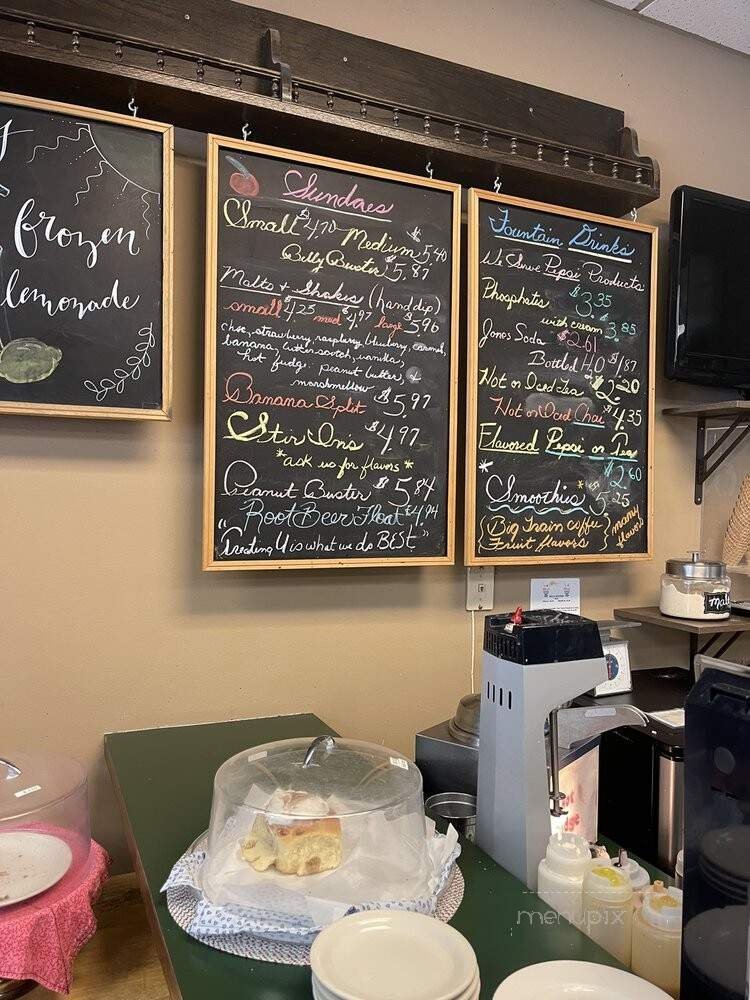 frozen
lemonade
Sundaes
Small $4.70 Medium $5.40
Belly Buster $5.87
Malts + Shakes (hand dip)
small $4.25 med $4.97 large $5.96
choc, strawberry, raspberry, blueberry, caramel,
banana, butterscotch, vanilla,
hot fudge, peanut butter, +
marshmellow
Banana Split $5.97
Stir Ins $4.97
*ask us for flavors*
Peanut Buster $5.84
Root Beer Float $4.94
"Treating U is what we do BEST"
Fountain Drinks
We Serve Pepsi Products
Phosphates $3.35
with cream 3.85
Jones Soda $2.61
Bottled H2O $1.87
Hot or Iced Tea $2.20
Hot or Iced Chai $4.35
Flavored Pepsi or Tea
$2.60
*Smoothies* $5.25
{Big Train coffee
Fruit flavors} many flavors
menupix